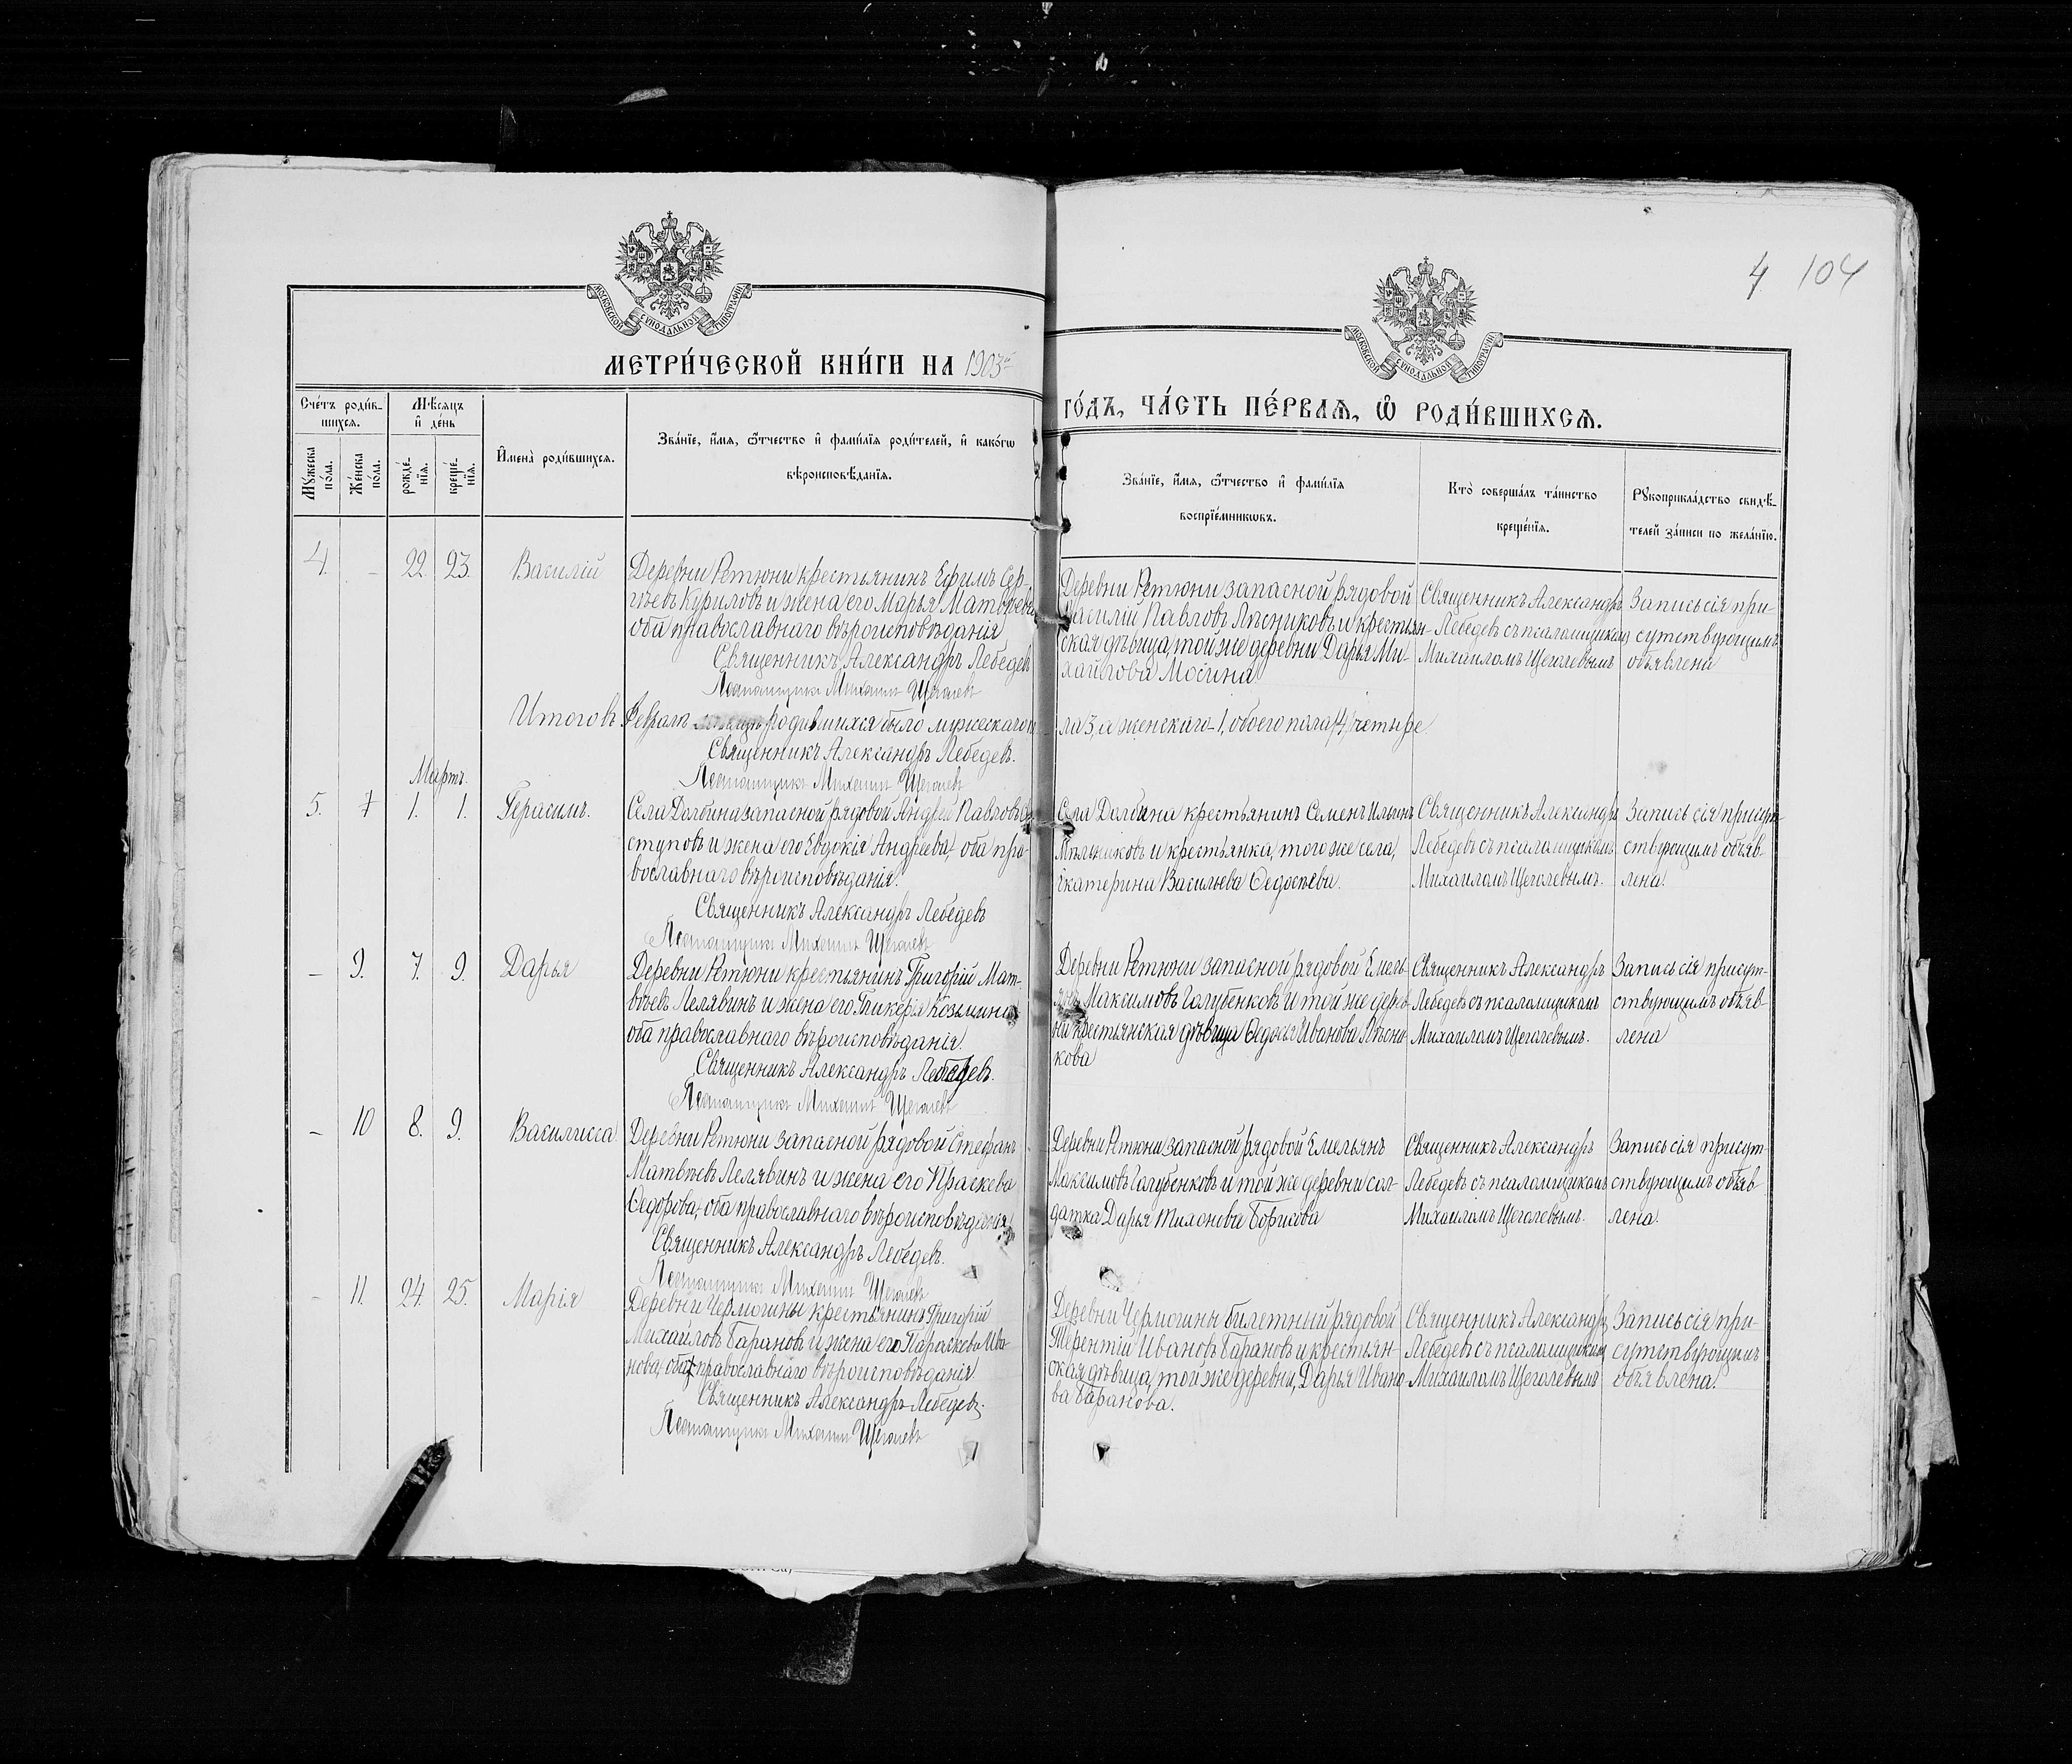 4 104
МОСКОВСКОЙ СѴНОДАЛЬНОЙ ТИПОГРАФІИ
МОСКОВСКОЙ СѴНОДАЛЬНОЙ ТИПОГРАФІИ
МЕТРИ́ЧЕСКОЙ КНИ́ГИ НА 1903й
ГО́ДЪ, ЧА́СТЬ ПЕ́РВАѦ, Ѡ҆ РОДИ́ВШИХСѦ.
Сче́тъ роди́в-
шихсѧ.
Мꙋ́жеска по́ла.
Же́нска по́ла.
Мѣ́сѧцъ
и҆ де́нь
рожде́-
нїѧ.
креще́-
нїѧ.
И҆мена̀ роди́вшихсѧ.
Зва́нїе, и҆́мѧ, ѻ҆́тчество и҆ фами́лїѧ роди́телей, и҆ како́гѡ
вѣроисповѣ́данїѧ.
Зва́нїе, и҆́мѧ, ѻ҆́тчество и҆ фами́лїѧ
воспрїе́мникѡвъ.
Кто̀ соверша́лъ та́инство
креще́нїѧ.
Рꙋкоприкла́дство свидѣ́-
телей за́писи по жела́нїю.
4. - 22. 23. Василій
Деревни Ретюни крестьянинъ Ефимъ Сер-
гѣевъ Куриловъ и жена его Марья Матвѣева
оба православнаго вѣроисповѣданія
Священникъ Александръ Лебедев
Псаломщикъ Михаилъ Щеголевъ
Деревни Ретюни запасной рядовой
Василій Павловъ Лѣсниковъ и крестьян-
ская дѣвица, той же деревни Дарья Ми-
хайлова Мосина
Священникъ Александръ
Лебедевъ съ псаломщикомъ
Михаиломъ Щеголевымъ
Запись сія при-
сутствующимъ
объявлена
Итого въ Февралѣ мѣсяцѣ родившихся было мужескаго по-
ла 3, а женскаго - 1, обоего пола /4/ четыре
Священникъ Александръ Лебедевъ.
Псаломщикъ Михаилъ Щеголевъ
Мартъ.
5. 1. 1. Герасимъ.
Села Долбина запасной рядовой Андрей Павловъ
ступовъ и жена его Евдокія Андреева, оба пра-
вославнаго вѣроисповѣданія.
Священникъ Александръ Лебедевъ
Псаломщикъ Михаилъ Щеголевъ
Села Долбина крестьянинъ Семенъ Ильинъ
Мѣльниковъ и крестьянка, того же села,
Екатерина Васильева Ѳедосѣева.
Священникъ Александръ
Лебедевъ съ псаломщикомъ
Михаиломъ Щеголевымъ.
Запись сія присут-
ствующимъ объяв-
лена.
- 9. 7. 9. Дарья
Деревни Ретюни крестьянинъ Григорій Мат-
вѣевъ Лелявинъ и жена его Гликерія Козьмина
оба православнаго вѣроисповѣданія.
Священникъ Александръ Лебедевъ.
Псаломщикъ Михаилъ Щеголевъ
Деревни Ретюни запасной рядовой Емель-
янъ Максимовъ Голубенковъ и той же дерев-
ни крестьянская дѣвица Ѳедосья Иванова Лѣсни-
кова
Священникъ Александръ
Лебедевъ съ псаломщикомъ
Михаиломъ Щеголевымъ.
Запись сія присут-
ствующимъ объяв-
лена
- 10 8. 9. Василисса.
Деревни Ретюни запасной рядовой Стефанъ
Матвѣевъ Лелявинъ и жена его Праскева
Ѳедорова, оба православнаго вѣроисповѣданія
Священникъ Александръ Лебедевъ.
Псаломщикъ Михаилъ Щеголевъ
Деревни Ретюни запасной рядовой Емельянъ
Максимовъ Голубенковъ и той же деревни сол-
датка Дарья Тихонова Борисова
Священникъ Александръ
Лебедевъ съ псаломщикомъ
Михаиломъ Щеголевымъ.
Запись сія присут-
ствующимъ объяв-
лена.
- 11. 24. 25. Марія
Деревни Чермошны крестьянинъ Григорій
Михайловъ Барановъ и жена его Параскева Ива-
нова, оба православнаго вѣроисповѣданія
Священникъ Александръ Лебедевъ.
Псаломщикъ Михаилъ Щеголевъ
Деревни Чермошны билетный рядовой
Терентій Ивановъ Барановъ и крестьян-
ская дѣвица, той же деревни, Дарья Ивано-
ва Баранова.
Священникъ Александръ
Лебедевъ съ псаломщикомъ
Михаиломъ Щеголевымъ
Запись сія при-
сутствующимъ
объявлена.